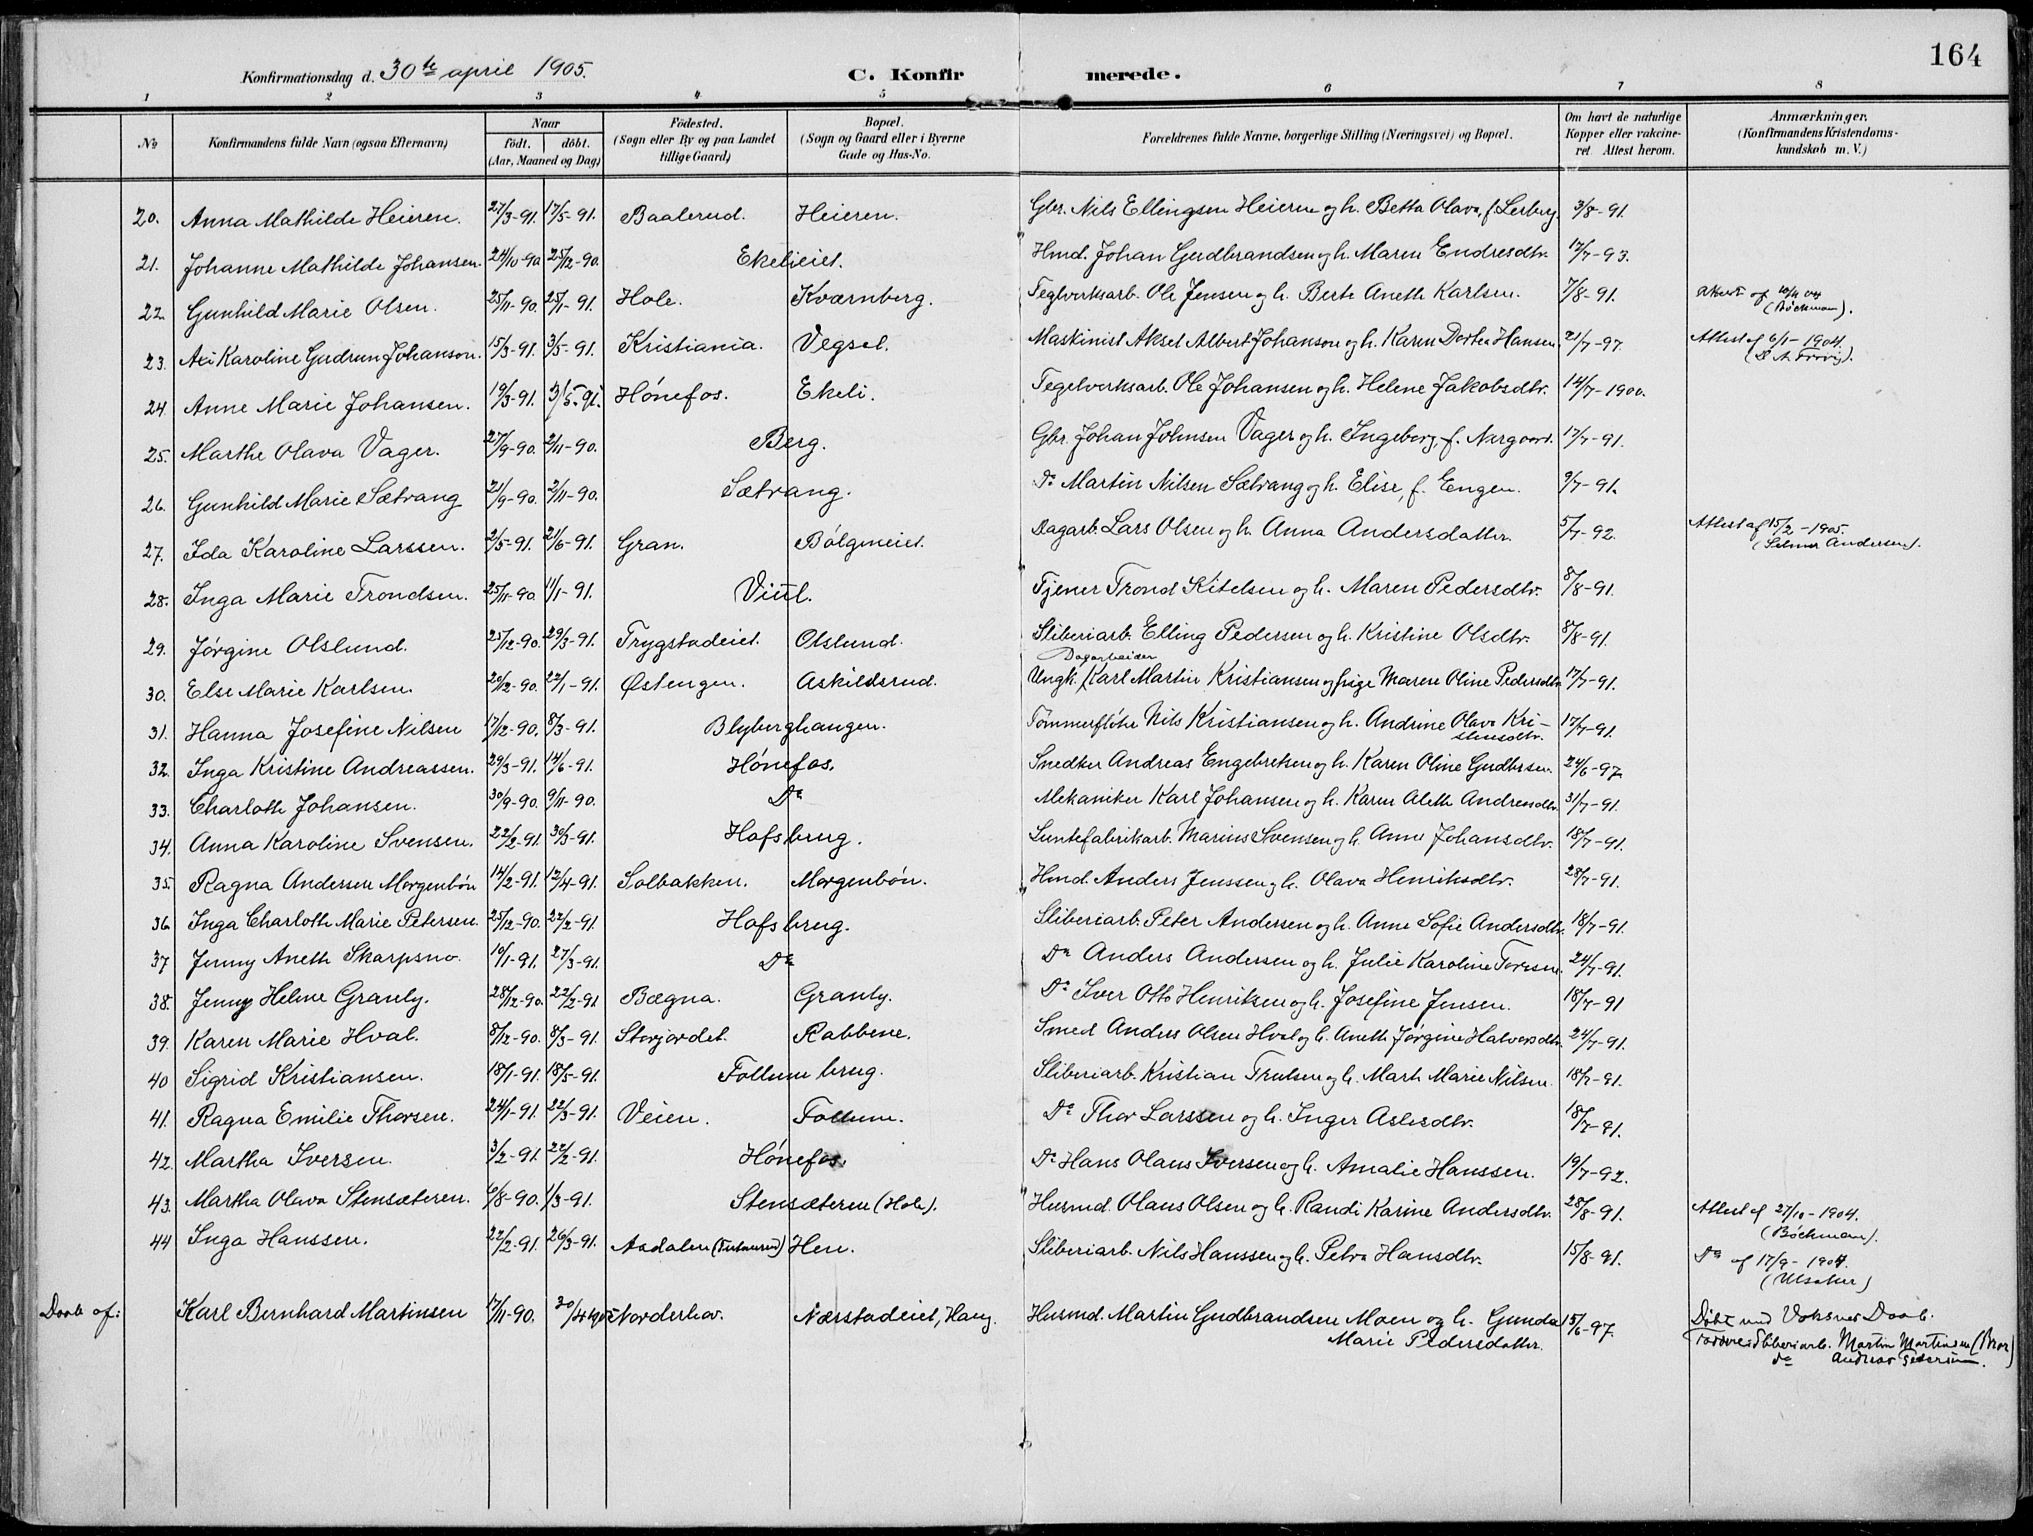 164
Konfirmationsdag d. 30te april 1905.
C. Konfirmerede.
1 2 3 4 5 6 7 8
No
Konfirmandens fulde Navn (ogsaa Efternavn)
Naar
født. døbt.
(Aar, Maaned og Dag)
Fødested.
(Sogn eller By og paa Landet
tillige Gaard)
Bopæl.
(Sogn og Gaard eller i Byerne
Gade og Hus-No.
Forældrenes fulde Navne, borgerlige Stilling (Næringsvei) og Bopæl.
Om havt de naturlige
Kopper eller vakcine-
ret. Attest herom.
Anmærkninger.
(Konfirmandens Kristendoms-
kundskab m. V.)
20. Anna Mathilde Heieren. 27/3-91. 17/5-91. Baalerud. Heieren. Gbr. Nils Ellingsen Heieren og h. Betta Olava, f. Lerberg 3/8-91.
21. Johanne Mathilde Johansen. 24/10-90 25/12-90. Ekelieiet. Hmd. Johan Gudbrandsen og h. Maren Endresdtr. 12/7-93.
22. Gunhild Marie Olsen. 25/11-90. 25/1-91. Hole. Kværnberg. Teglverksarb. Ole Jensen og h. Berte Aneth Karlsen. 7/8-91. Attest af 10/4 04
(Bøckman).
23. Axi Karoline Gudrun Johanson. 15/3-91. 3/5-91. Kristiania. Vegsel. Maskinist Aksel Albert Johanson og h. Karen Dortea Hansen 21/7-97. Attest af 6/1-1904.
24. Anne Marie Johansen. 19/3-91. 3/5-91. Hønefos. Ekeli. Tegelverksarb. Ole Johansen og h. Helene Jakobsdtr. 14/7-1900.
25. Marthe Olava Vager. 27/9-90. 2/11-90. Berg. Gbr. Johan Johnsen Vager og h. Ingeborg, f. Nærgaard. 17/7-91.
26. Gunhild Marie Sætrang 21/9-90. 2/11-90. Sætrang. Do Martin Nilsen Sætrang og h. Elise, f. Engen. 9/7-91.
27. Ida Karoline Larssen. 2/5-91. 21/6-91. Gran. Bølgeneiet. Dagarb. Lars Olsen og h. Anna Andersdatter. 5/7-92. Attest af 15/2-1905.
(Selmer Andersen).
28. Inga Marie Trondsen. 25/11-90 11/1-91. Viul. Tjener Trond Kitelsen og h. Maren Pedersdtr. 8/8-91.
29. Jørgine Olslund. 25/12-90. 29/3-91. Trygstadeiet. Olslund. Sliberiarb. Elling Pedersen og h. Kristine Olsdtr. 8/8-91.
Dagarbeider
30. Else Marie Karlsen. 20/12-90. 22/1-91. Østengen. Askildsrud. Ungk. Karl Martin Kristiansen og pige Maren Oline Pedersdtr 17/7-91.
31. Hanna Josefine Nilsen 17/12-90. 8/3-91. Blyberghangen. Tømmerfløter Nils Kristiansen og h. Andrine Olava Kri-
stensdtr. 17/7-91.
32. Inga Kristine Andreassen. 29/3-91. 14/6-91. Hønefos. Snedker Andreas Engebretsen og h. Karen Oline Gudbrsen. 24/6-97
33. Charloth Johansen. 30/9-90. 9/11-90. Do Mekaniker Karl Johansen og h. Karen Aleth Andreasdtr. 31/7-91.
34. Anna Karoline Svensen. 22/2-91. 30/3-91. Hofsbrug. Luntefabrikarb. Marius Svensen og h. Anne Johansdtr. 18/7-91.
35. Ragna Andersen Morgenbøn 14/2-91. 12/4-91. Solbakken. Morgenbøn. Hmd. Anders Jenssen og h. Olava Henriksdtr. 28/7-91.
36. Inga Charloth Marie Petersen. 25/12-90. 22/2-91. Hofsbrug. Sliberiarb. Peter Andersen og h. Anne Sofie Andersdtr. 18/7-91.
37 Jenny Aneth Skarpsno. 10/1-91. 27/3-91. Do Do Anders Andersen og h. Julie Karoline Toresen. 24/7-91.
38. Jenny Helene Granly. 28/12-90. 22/2-91 Bægna. Granly. Do Iver Otto Henriksen og h. Josefine Jensen. 18/7-91
39. Karen Marie Hval. 8/12-90. 8/3-91. Storjordet. Rabbene. Smed Anders Olsen Hval og h. Aneth Jørgine Halvorsdtr. 24/7-91.
40 Sigrid Kristiansen. 18/1-91. 18/5-91. Follum brug. Sliberiarb. Kristian Trulsen og h. Marth Marie Nilsen. 18/7-91.
41. Ragna Emilie Thorsen. 24/1-91. 22/3-91. Veien. Follum. Do Thor Larssen og h. Inger Aslesdtr. 18/7-91.
42. Martha Iversen. 3/2-91. 22/2-91. Hønefos. Do Hans Olaus Iversen og h. Amalie Hanssen. 19/7-92.
43. Martha Olava Stensæteren. 6/8-90. 1/3-91. Stensæteren (Hole). Husmd. Olaus Olsen og h. Randi Karine Andersdtr. 28/8-91. Attest af 27/10-1904.
(Bøckman).
44 Inga Hanssen. 22/2-91. 26/3-91. Aadalen Hen. Sliberiarb. Nils Hanssen og h. Petra Hansdtr. 15/8-91. Do af 17/9-1904.
(Ulsaker)
Daab af: Karl Bernhard Martinsen 17/11-90. 30/4 1905 Norderhov. Nærstadeiet, Haug. Husmd. Martin Gudbrandsen Moen og h. Gunda
Marie Pedersdatter. 15/6-97. Døbt ved Voksnes Daab.
Faddere: Sliberiarb. Martin Martinsen (Bror)
do Andreas Pedersen.